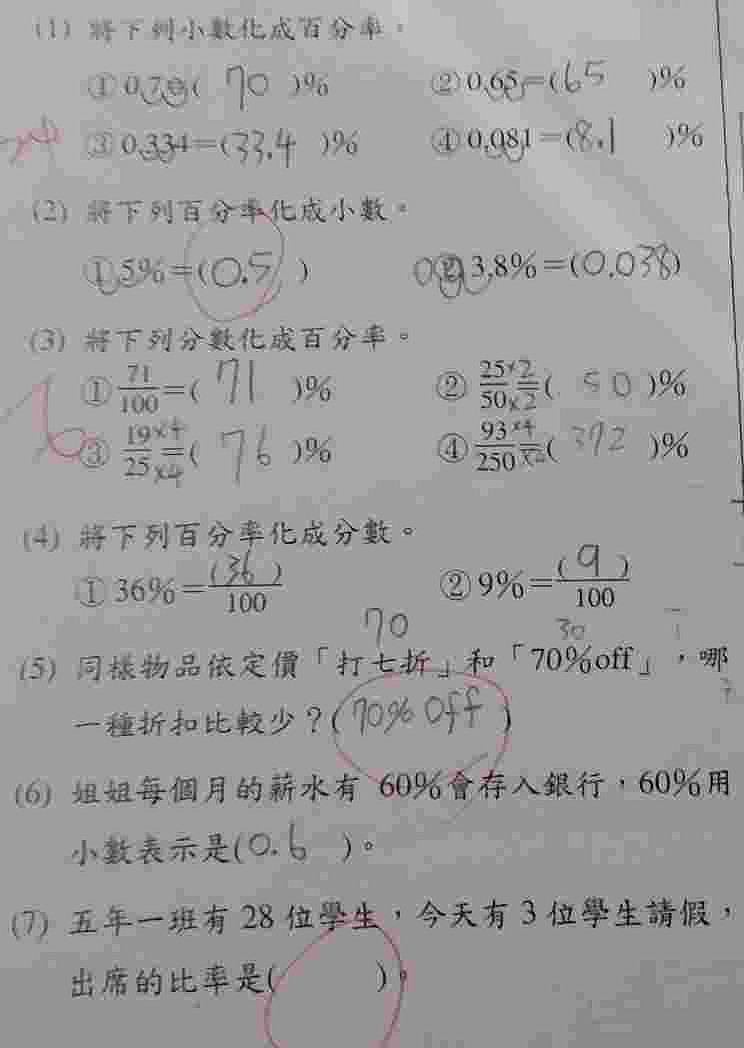 (1) 將下列小數化成百分率。
① 0.70(70)% ② 0.65=(65)%
③ 0.334=(33.4)% ④ 0.081=(8.1)%
(2) 將下列百分率化成小數。
① 5%=(0.5) ② 3.8%=(0.038)
(3) 將下列分數化成百分率。
① 71/100=(71)% ② 25×2/50×2=(50)%
③ 19×4/25×4=(76)% ④ 93×4/250×4=(372)%
(4) 將下列百分率化成分數。
① 36%=(36)/100 ② 9%=(9)/100
70 30
(5) 同樣物品依定價「打七折」和「70%off」,哪
一種折扣比較少?(70% Off)
(6) 姐姐每個月的薪水有 60%會存入銀行,60%用
小數表示是(0.6)。
(7) 五年一班有 28 位學生,今天有 3 位學生請假,
出席的比率是( )。